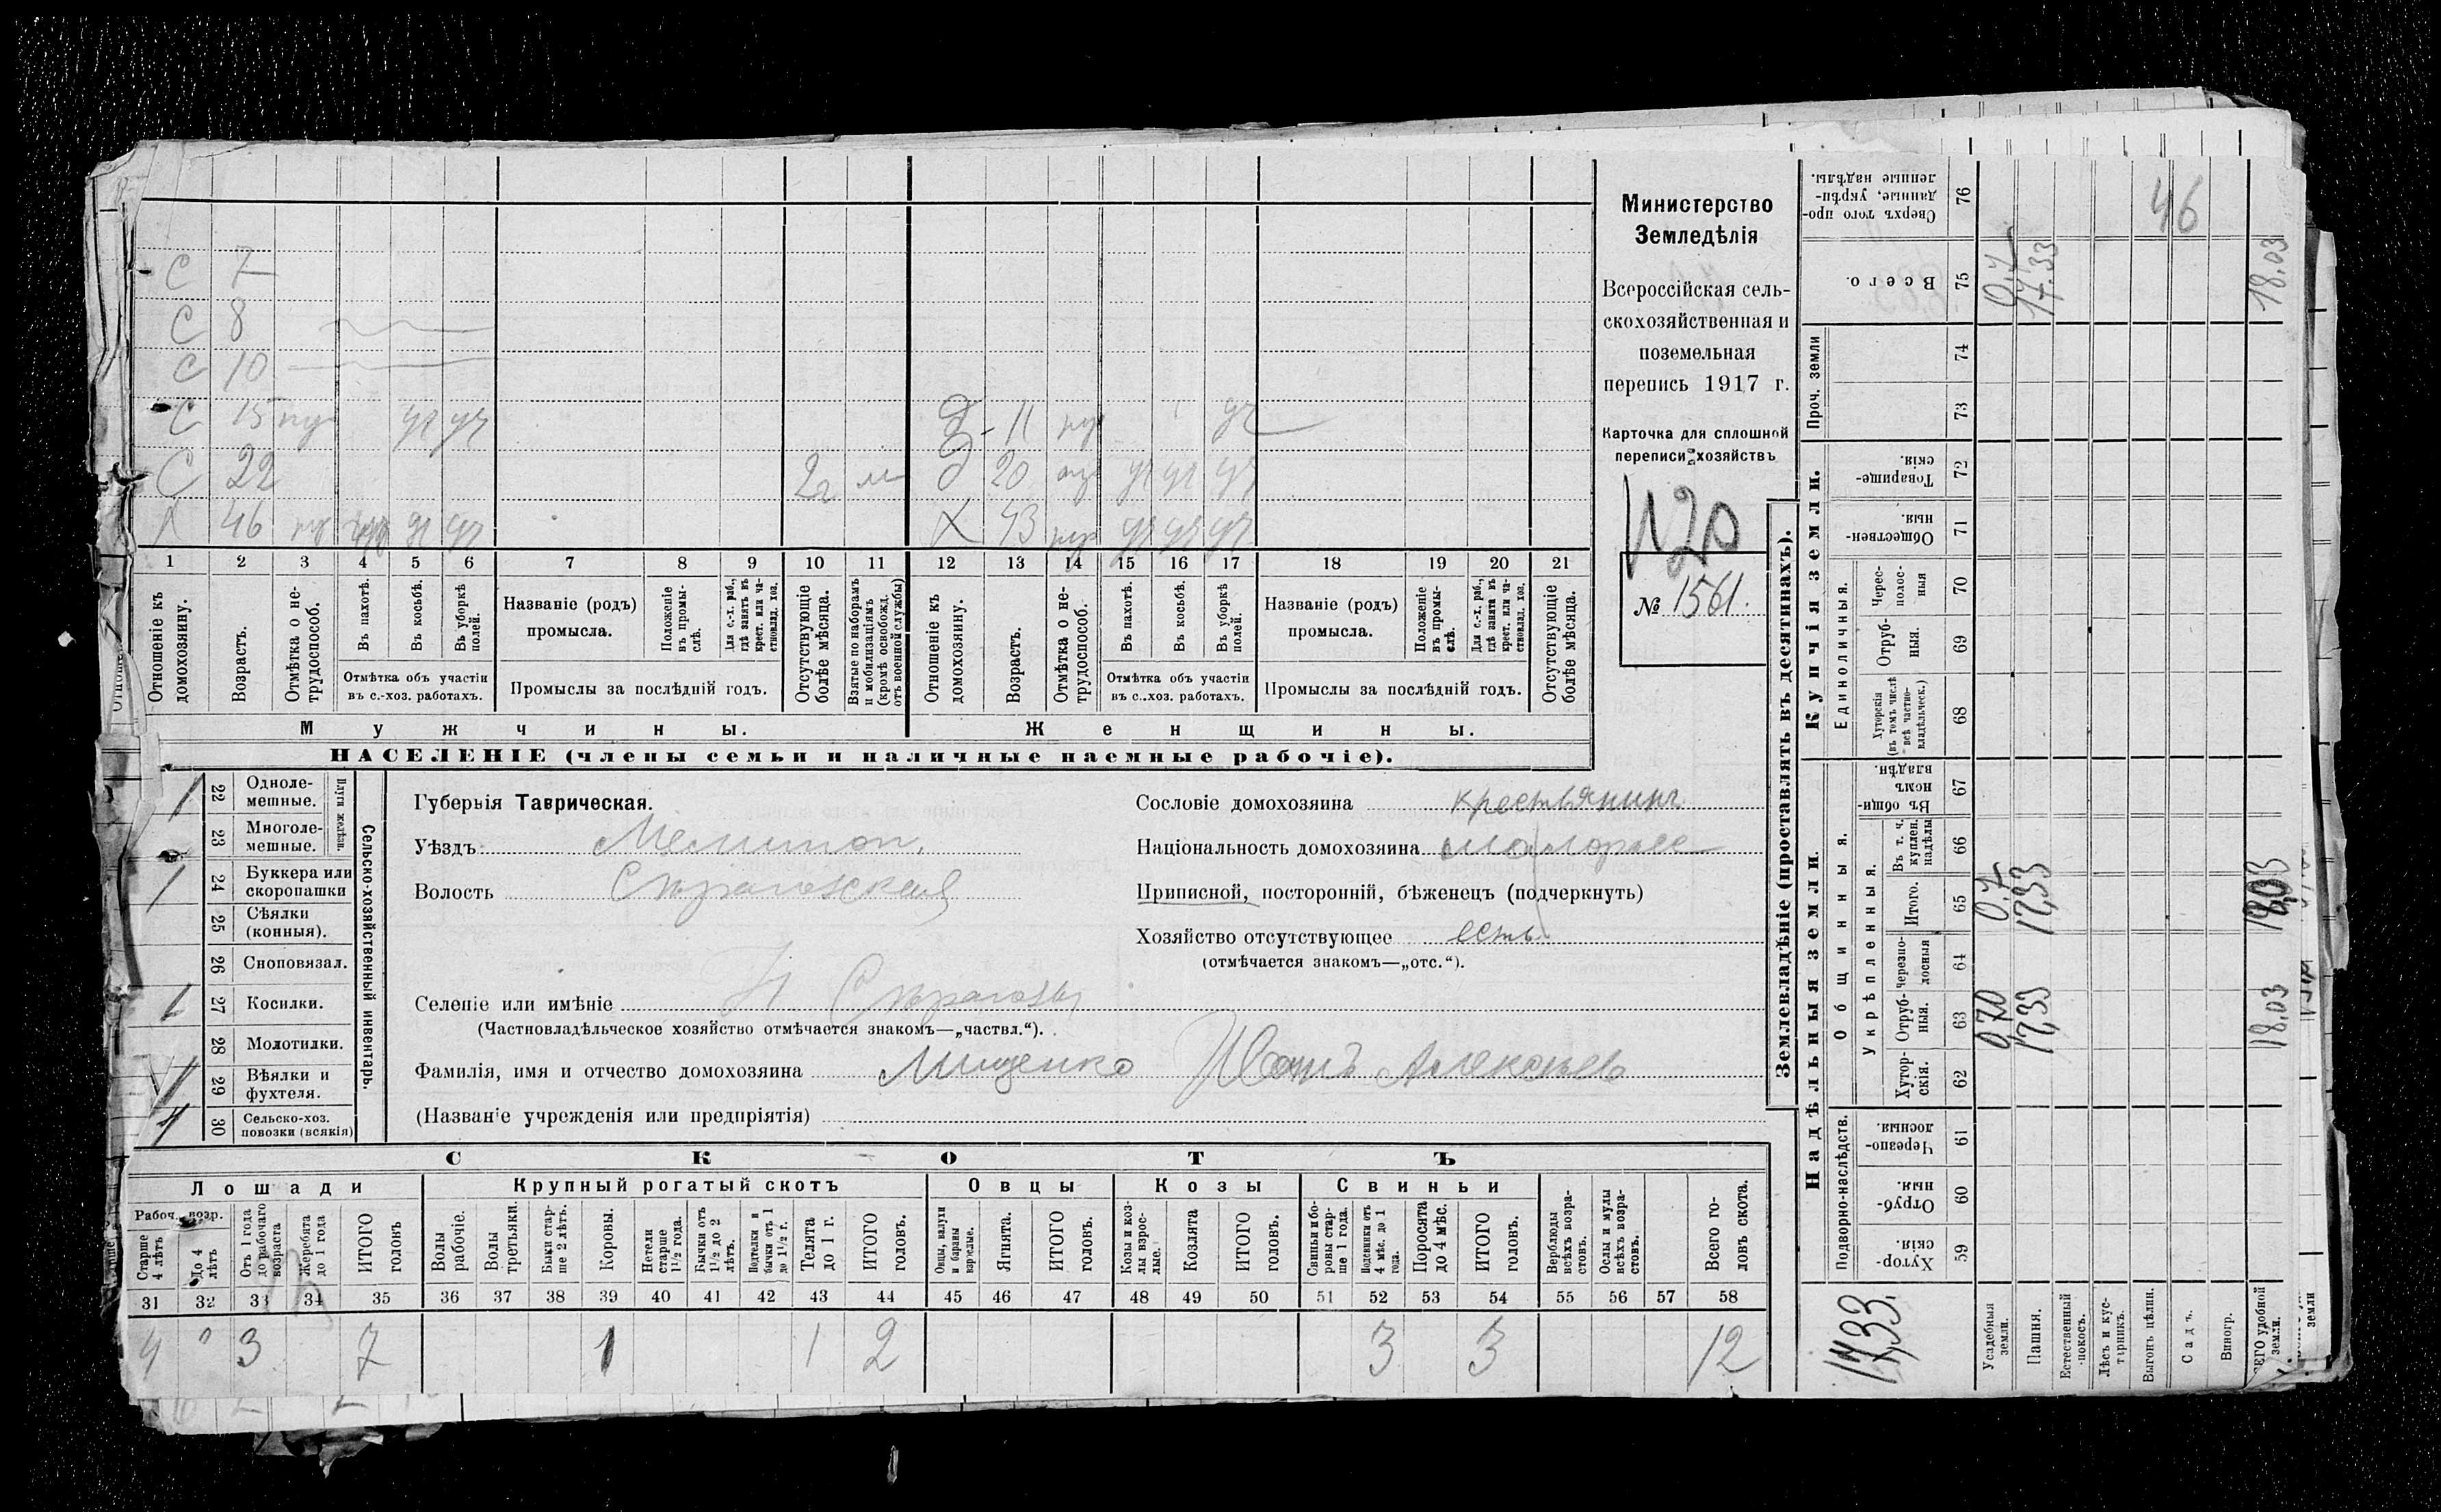 С 7
С 8
С 10
С 15 уч уч д 11 уч
С 22 2г м д 20 уч уч уч
Х 46 уч уч Х 43 уч уч уч
1 2 3 4 5 6 7 8 9 10 11 12 13 14 15 16 17 18 19 20 21
Отношеніе къ домохозяину.
Возрастъ.
Отмѣтка о нетрудоспособ.
Въ пахотѣ.
Въ косьбѣ.
Въ уборкѣ полей.
Отмѣтка объ участіи
въ с.-хоз. работахъ.
Названіе (родъ)
промысла.
Положеніе въ промыслѣ.
Для с.-х. раб., гдѣ занятъ въ крест. или частновлад. хоз.
Промыслы за послѣдній годъ.
Отсутствующіе болѣе мѣсяца.
Взятые по наборамъ и мобилизаціямъ (кромѣ освобожд. отъ военной службы)
Отношеніе къ домохозяину.
Возрастъ.
Отмѣтка о нетрудоспособ.
Въ пахотѣ.
Въ косьбѣ.
Въ уборкѣ полей.
Отмѣтка объ участіи
въ с.-хоз. работахъ.
Названіе (родъ)
промысла.
Положеніе въ промыслѣ.
Для с.-х. раб., гдѣ занята въ крест. или частновлад. хоз.
Промыслы за послѣдній годъ.
Отсутствующіе болѣе мѣсяца.
Мужчины.
Женщины.
НАСЕЛЕНІЕ (члены семьи и наличные наемные рабочіе).
Министерство
Земледѣлія
Всероссійская сель-
скохозяйственная и
поземельная
перепись 1917 г.
Карточка для сплошной
переписи хозяйствъ
№ 1561.
1 22 Одноле-
мешные.
23 Многоле-
мешные.
Плуги желѣзн.
1 24 Буккера или
скоропашки
25 Сѣялки
(конныя).
26 Сноповязал.
1 27 Косилки.
28 Молотилки.
1 29 Вѣялки и
фухтеля.
30 Сельско-хоз.
повозки (всякія)
Сельско-хозяйственный инвентарь.
Губернія Таврическая.
Уѣздъ Мелитоп.
Волость Строгозская
Селеніе или имѣніе Н Строгозы
(Частновладѣльческое хозяйство отмѣчается знакомъ—„частвл.“).
Фамилія, имя и отчество домохозяина Мищенко Иванъ Алексѣев
(Названіе учрежденія или предпріятія)
Сословіе домохозяина крестьянинъ
Національность домохозяина малоросс
Приписной, посторонній, бѣженецъ (подчеркнуть)
Хозяйство отсутствующее есть
(отмѣчается знакомъ—„отс.“).
СКОТЪ
Лошади
Рабоч. возр.
Старше 4 лѣтъ
До 4 лѣтъ
Отъ 1 года до рабочаго возраста
Жеребята до 1 года
ИТОГО головъ
Крупный рогатый скотъ
Волы рабочіе.
Волы третьяки.
Быки старше 2 лѣтъ.
Коровы.
Нетели старше 1½ года.
Бычки отъ 1½ до 2 лѣтъ.
Подтелки и бычки отъ 1 до 1½ г.
Телята до 1 г.
ИТОГО головъ.
Овцы
Овцы, валухи и бараны взрослые.
Ягнята.
ИТОГО головъ.
Козы
Козы и козлы взрослые.
Козлята
ИТОГО головъ.
Свиньи
Свиньи и боровы старше 1 года.
Подсвинки отъ 4 мѣс. до 1 года.
Поросята до 4 мѣс.
ИТОГО головъ.
Верблюды всѣхъ возрастовъ.
Ослы и мулы всѣхъ возрастовъ.
Всего головъ скота.
31 32 33 34 35 36 37 38 39 40 41 42 43 44 45 46 47 48 49 50 51 52 53 54 55 56 57 58
4 3 7 1 1 2 3 3 12
Землевладѣніе (проставлять въ десятинахъ).
Купчія земли.
Надѣльныя земли.
Сверхъ того проданные, укрѣпленные надѣлы. 76 46
Всего. 75 0,7 17.33 18.03
Проч. земли
74
73
Товарищескія. 72
Общественныя. 71
Единоличныя.
Чересполосныя 70
Отрубныя. 69
Хуторскія (въ томъ числѣ всѣ частновладѣльческ.) 68
Общинныя.
Въ общинномъ владѣн. 67
Укрѣпленныя.
Въ т. ч. куплен. надѣлы 66
Итого. 65 0.7 17,33 18,03
Черезполосныя 64
Отрубныя. 63 0,70 17,33 18,03
Хуторскія. 62
Подворно-наслѣдств.
Черезполосныя. 61
Отрубныя. 60
Хуторскія. 59
17,33.
Усадебныя земли.
Пашня.
Естественный покосъ.
Лѣсъ и кустарникъ.
Выгонъ цѣлин.
Садъ.
Виногр.
ВСЕГО удобной земли.